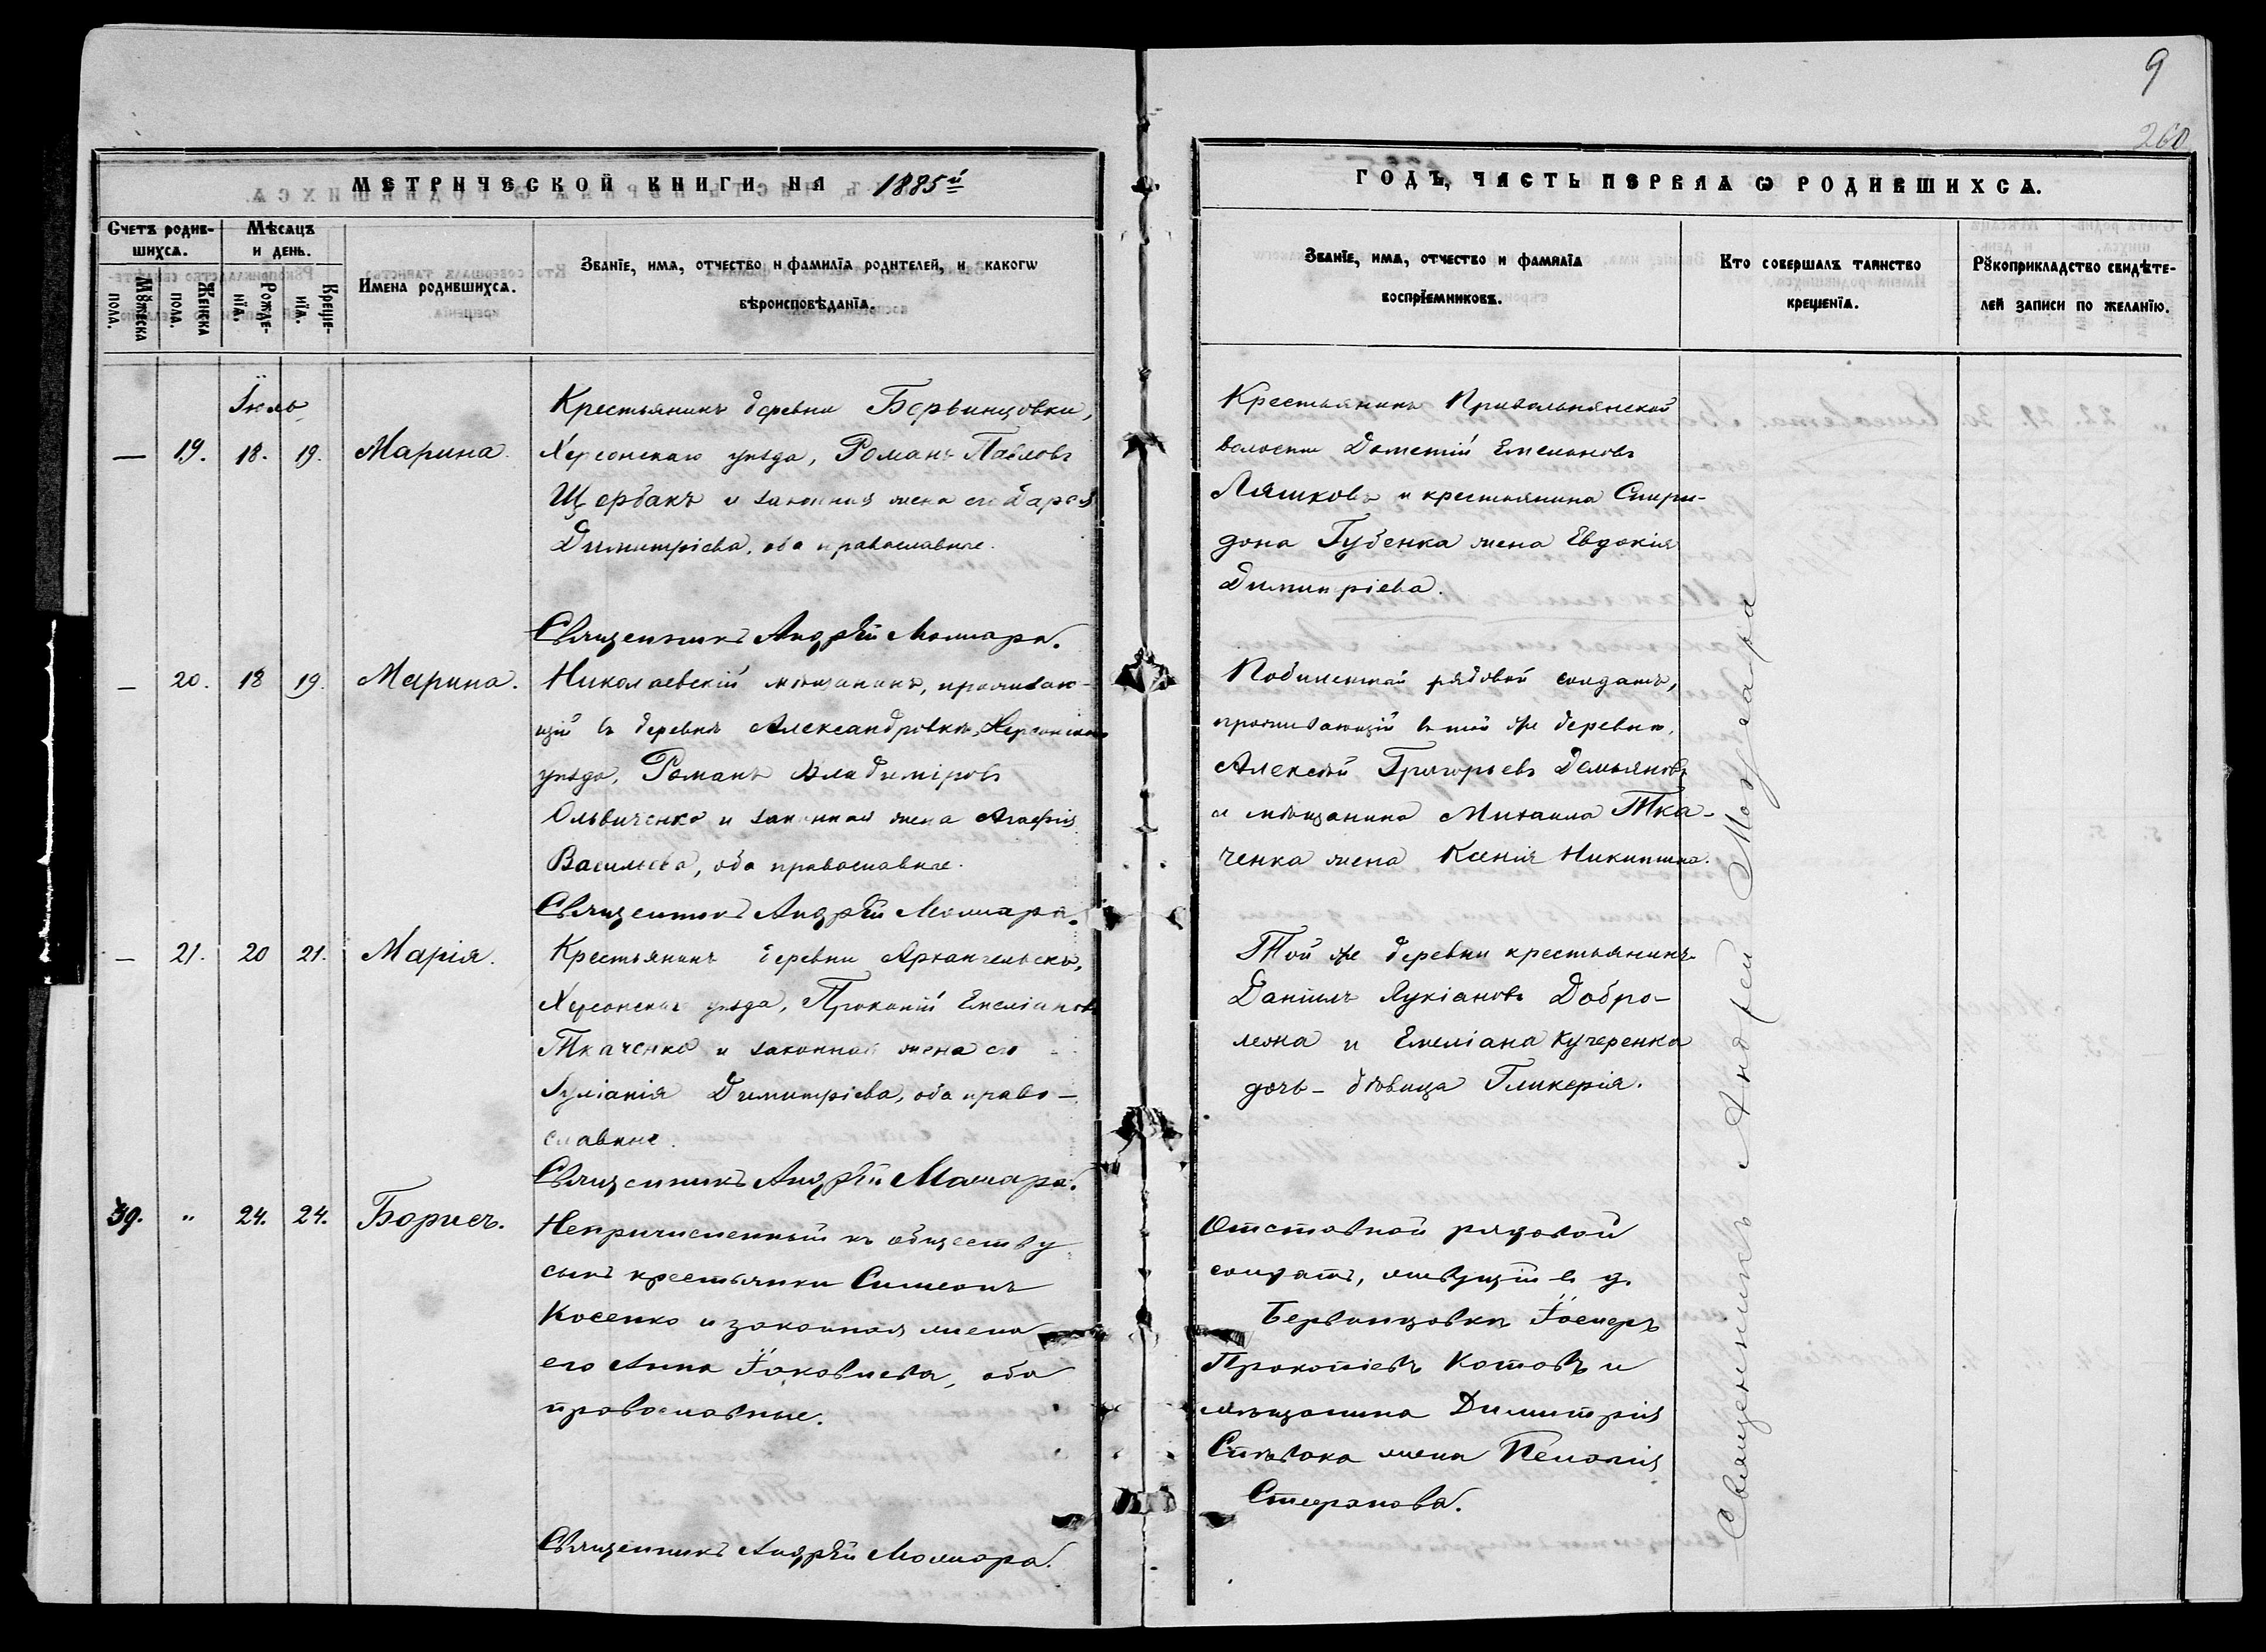 9
260
МЕТРИЧЕСКОЙ КНИГИ НА 1885й
ГОДЪ, ЧАСТЬ ПЕРВАЯ Ѡ РОДИВШИХСѦ.
Счетъ родив-
шихсѧ.
Мѣсѧцъ
и день.
Мꙋжеска
пола.
Женска
пола.
Рожде-
нїѧ.
Креще-
нїѧ.
Имена родившихсѧ.
Званїе, имѧ, отчество и фамилїѧ родителей, и какогѡ
вѣроисповѣданїѧ.
Званїе, имѧ, отчество и фамилїѧ
воспрїемниковъ.
Кто совершалъ таинство
крещенїѧ.
Рꙋкоприкладство свидѣте-
лей записи по желанїю.
Іюль
— 19. 18. 19. Марина.
Крестьянинъ деревни Бервинцовки,
Херсонскаго уѣзда, Романъ Павловъ
Щербакъ и законная жена его Дарія
Димитріева, оба православные.
Священникъ Андрей
Крестьянинъ Привольнянской
волости Дометій Емеліановъ
Ляшковъ и крестьянина Спири-
дона Губенка жена Евдокія
Димитріева.
— 20. 18 19. Марина.
Николаевскій мѣщанинъ, проживаю-
щій въ деревнѣ Александровкѣ, Херсонскаго
уѣзда, Романъ Владиміровъ
Ольвиченко и законная жена Агафія
Васильева, оба православные.
Священникъ Андрей
рядовой солдатъ,
проживающій въ той же деревнѣ,
Алексѣй Григорьевъ Демьяновъ
и мѣщанина Михаила Тка-
ченка жена Ксенія Никитина.
— 21. 20 21. Марія.
Крестьянинъ деревни Архангельской,
Херсонскаго уѣзда, Прокопій Емеліановъ
Ткаченко и законная жена его
Іуліанія Димитріева, оба право-
славные.
Священникъ Андрей
Той же деревни крестьянинъ
Даніилъ Лукіановъ Добро-
лежа и Емеліана Кучеренка
дочь - дѣвица Гликерія.
39. " 24. 24. Борисъ.
Непричисленный къ обществу
сынъ крестьянки Симеонъ
Косенко и законная жена
его Анна Іаковлева, оба
православные.
Священникъ Андрей
Отставной рядовой
солдатъ, живущій въ д.
Бервинцовкѣ Іосифъ
Прокопіевъ Котовъ и
мѣщанина Димитрія
жена Пелагія
Стефанова.
Священникъ Андрей